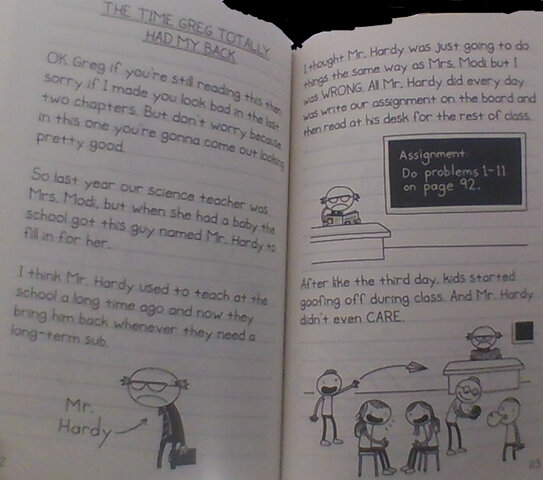 THE TIME GREG TOTALLY
HAD MY BACK
OK Greg if you're still reading this then
sorry if I made you look bad in the last
two chapters. But don't worry because
in this one you're gonna come out looking
pretty good.
So last year our science teacher was
Mrs. Modi, but when she had a baby the
school got this guy named Mr. Hardy to
fill in for her.
I think Mr. Hardy used to teach at the
school a long time ago and now they
bring him back whenever they need a
long-term sub.
Mr.
Hardy
I thought Mr. Hardy was just going to do
things the same way as Mrs. Modi but I
was WRONG. All Mr. Hardy did every day
was write our assignment on the board and
then read at his desk for the rest of class.
Assignment:
Do problems 1-11
on page 92.
After like the third day, kids started
goofing off during class. And Mr. Hardy
didn't even CARE.